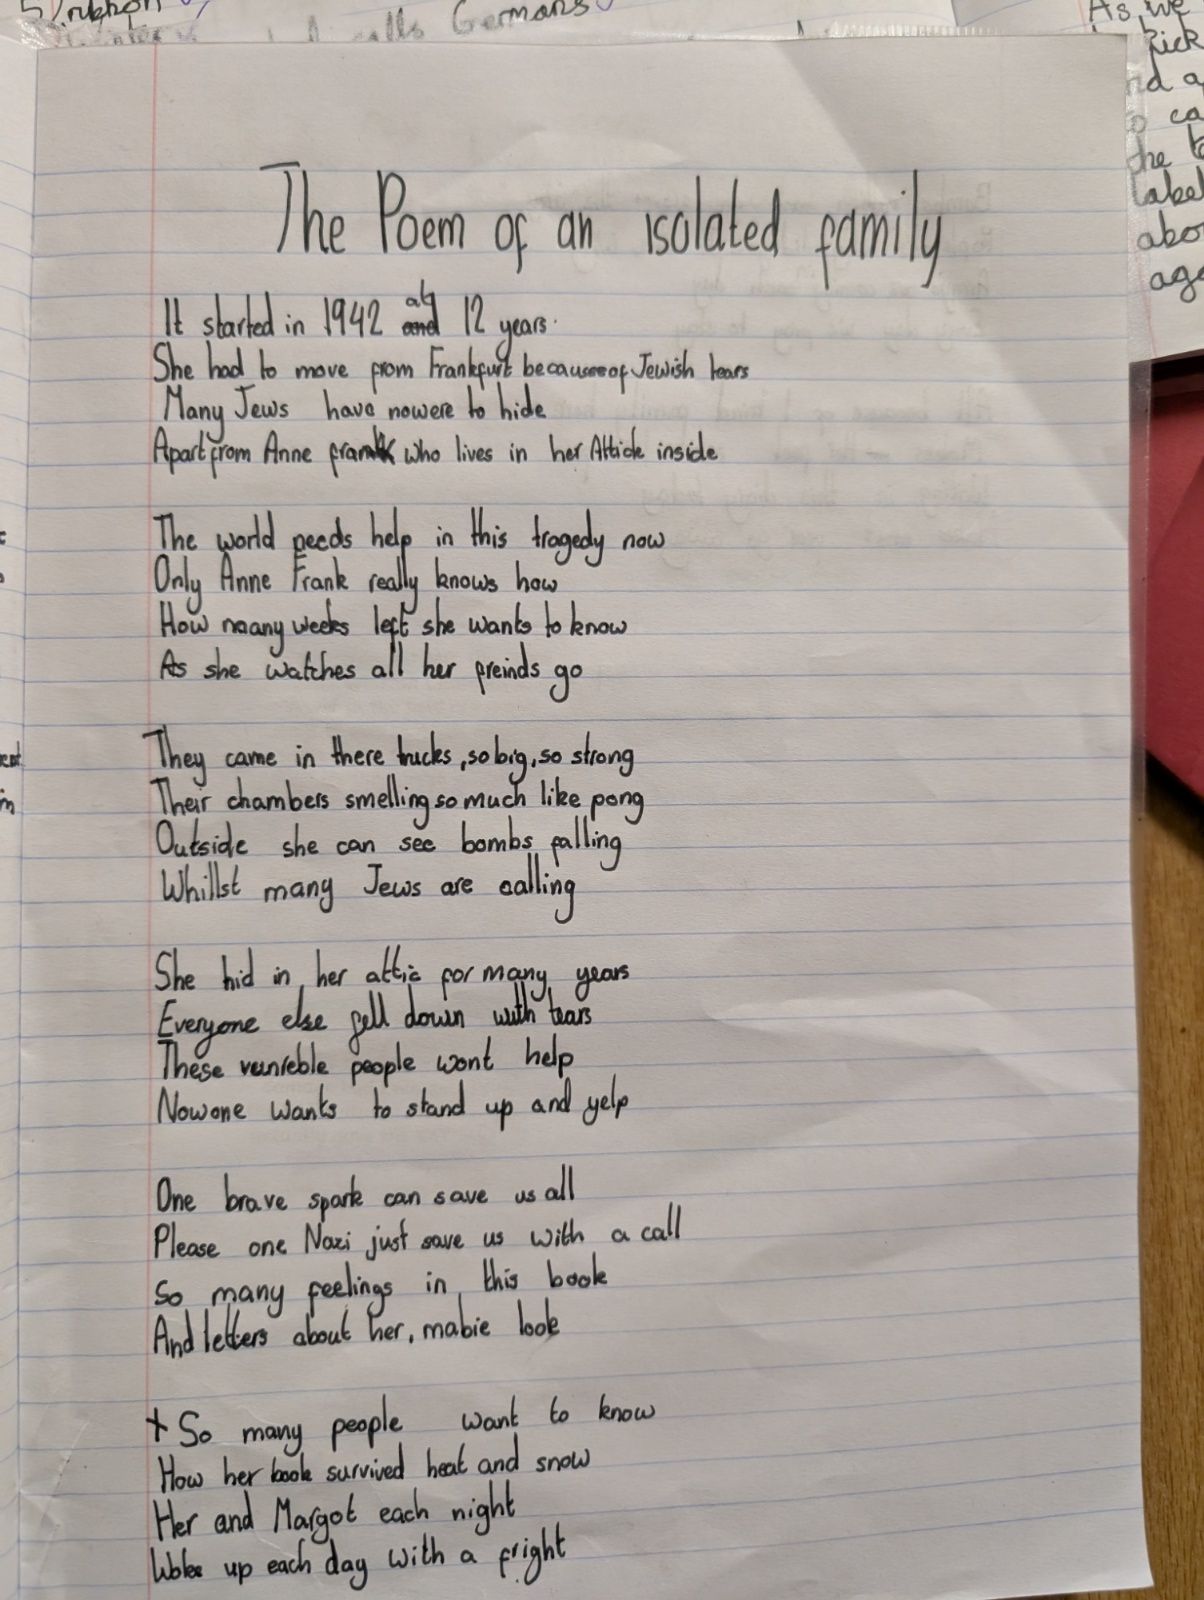 Germans
As we
The Poem of an isolated family
It started in 1942 at 12 years.
She had to move from Frankfurt because of Jewish tears
Many Jews have nowere to hide
Apart from Anne frank who lives in her Attick inside
The world needs help in this tragedy now
Only Anne Frank really knows how
How many weeks left she wants to know
As she watches all her freinds go
They came in there trucks, so big, so strong
Their chambers smelling so much like pong
Outside she can see bombs falling
Whillst many Jews are calling
She hid in her attic for many years
Everyone else fell down with tears
These people wont help
Nowone wants to stand up and yelp
One brave spark can save us all
Please one Nazi just save us with a call
So many feelings in this book
And letters about her, mabie look
+ So many people want to know
How her book survived heat and snow
Her and Margot each night
Woke up each day with a fright